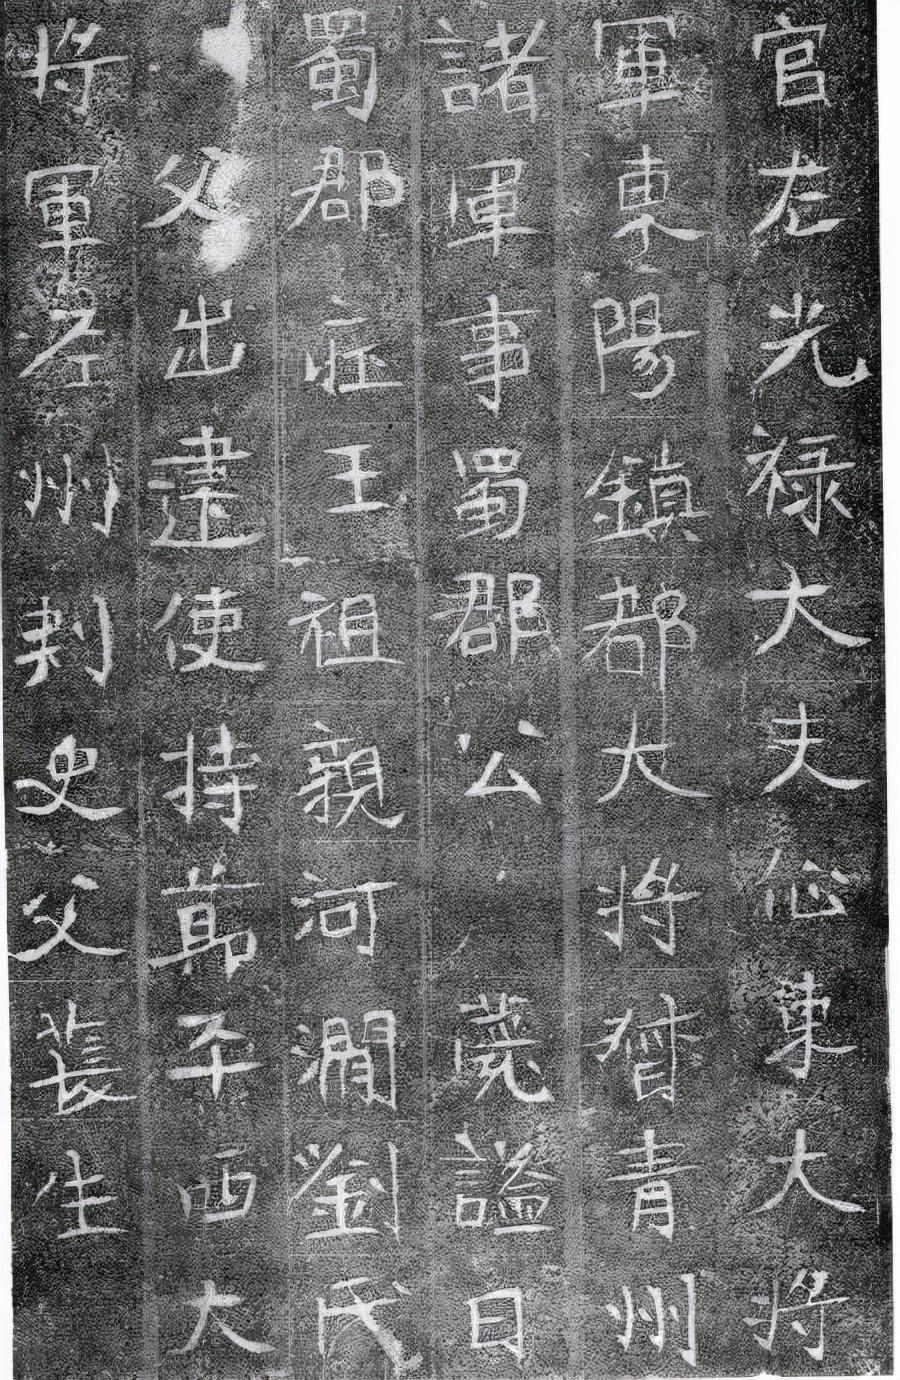 官左光禄大夫征東大将
軍東陽鎮都大将督青州
諸軍事蜀郡公薨謚曰
蜀郡庒王祖親河澗劉氏
父出建使持節平西大
将軍州刺史父萇生